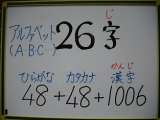 アルファベット
(A·B·C…)
26字
じ
ひらがな カタカナ 漢字
かんじ
48+48+1006